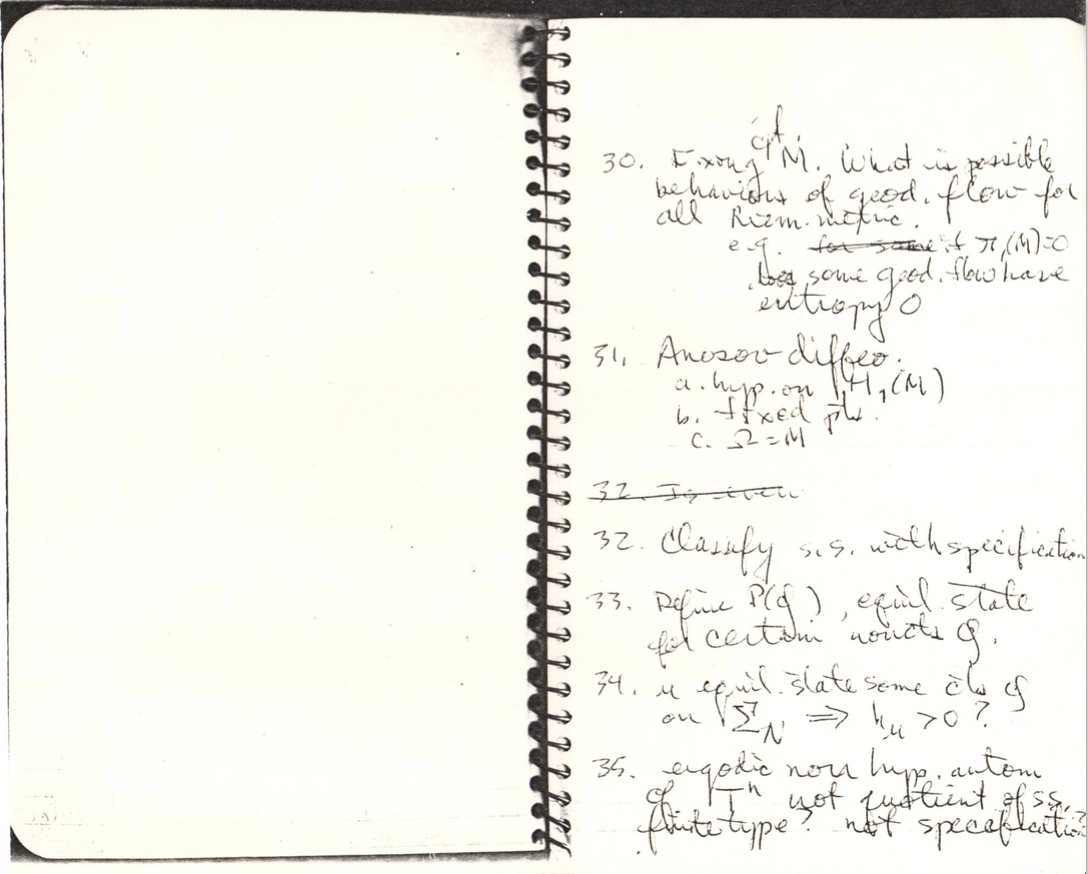 cpt.
30. Fix any M. What is possible
behaviors of geod. flow for
all Riem. metric.
e.g. for some if π₁(M)=0
does some geod. flow have
entropy 0
31. Anosov diffeo.
a. hyp. on H₁(M)
b. fixed pts.
c. Ω = M
32. Is even
32. Classify s.s. with specification
33. Define P(φ), equil. state
for certain noncts φ.
34. μ equil. state some cts φ
on Σ_N ⇒ h_μ > 0 ?
35. ergodic non hyp. autom
of Tⁿ not quotient of s.s.
finite type? not specification?